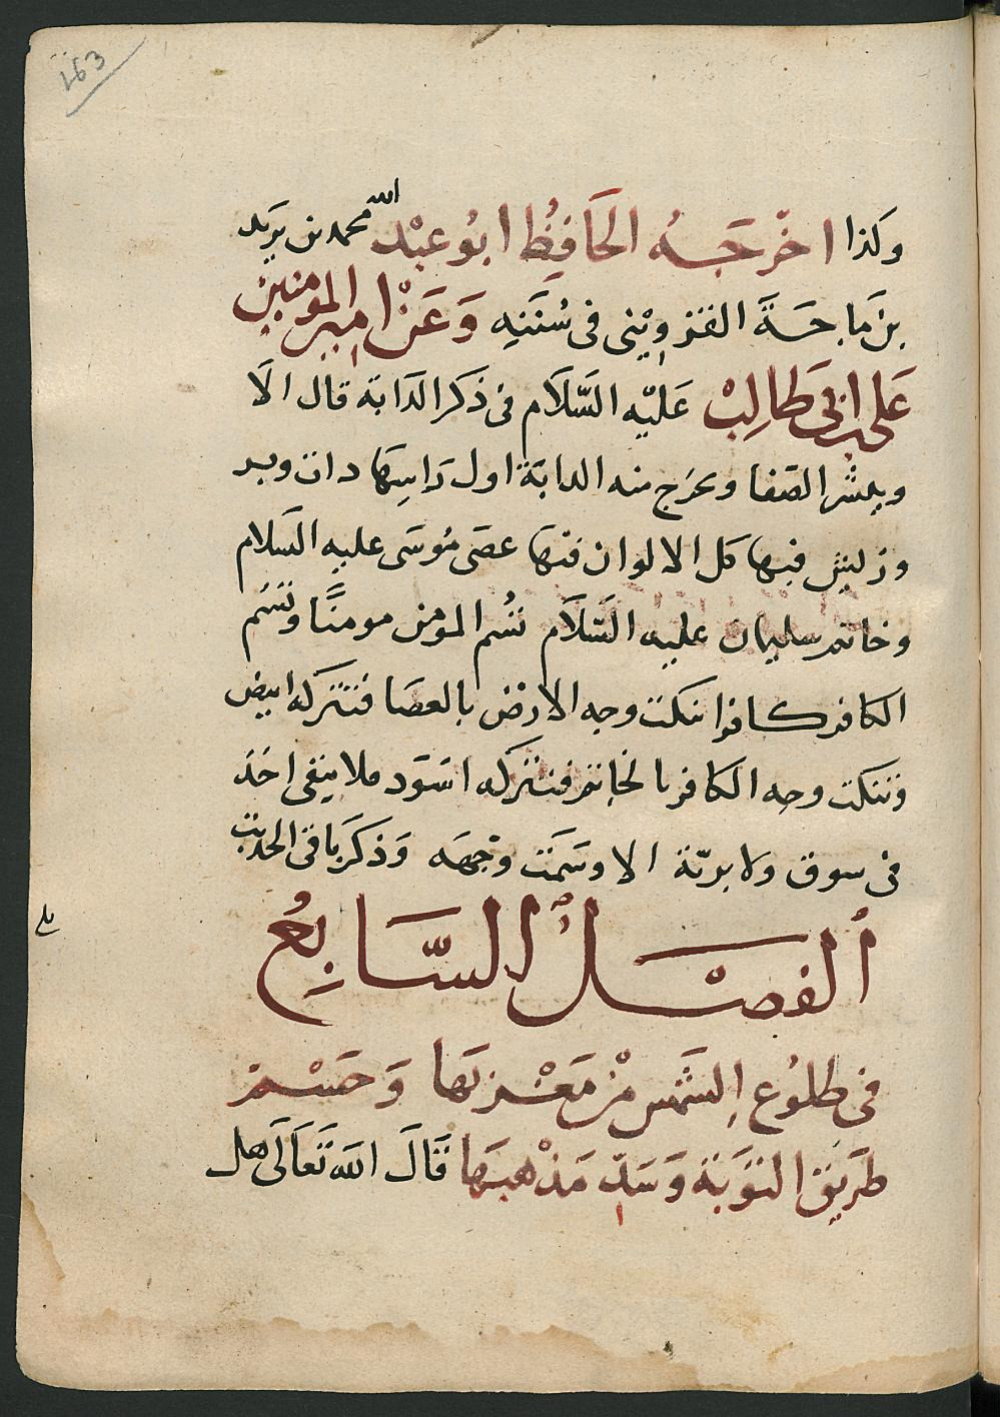 163
وكذا اخرجه الحافظ ابو عبد الله محمد بن يزيد
بن ماجة القزويني في سننه وعن امير المومنين
علي ابن ابي طالب عليه السلام في ذكر الدابة قال الا
وبعشر الصفا وتخرج منه الدابة اول راسها ذات وبر
وزليش فيها كل الالوان فيها عصى موسى عليه السلام
وخاتم سليمان عليه السلام تسم المومن مومنًا وتسم
الكافر كافرا تنكت وجه الارض بالعصا فتتركه ابيض
وتنكت وجه الكافر بالخاتم فتتركه اسود فلا يبقى احد
في سوق ولا برية الا وسمت وجهه وذكر باقي الحديث
الفصل السابع
في طلوع الشمس من مغربها وحسم
طريق التوبة وسد مذهبها قال الله تعالى هل